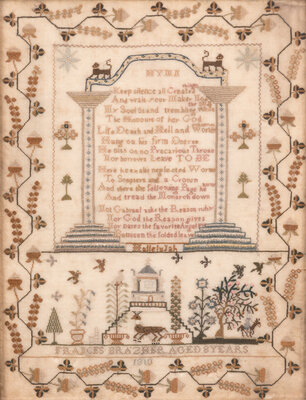 HYMN
Keep silence all Created
And wait your Maker
My Soul stand trem
The Honours of her God
Life Death and Hell and Worlds
Hang on his firm Decree
He sits on no Precarious Throne
Nor borrows Leave TO BE
Here he
neglected Worms
To Scepters and a Crown
And there the following Page he
And tread the Monarch down
Not Gabriel asks the Reason why
Nor God the Reason gives
Nor dares the favorite Angel
Between the folded leaves
Hallelujah
FRANCES BRAZHER AGED 9 YEARS
1810